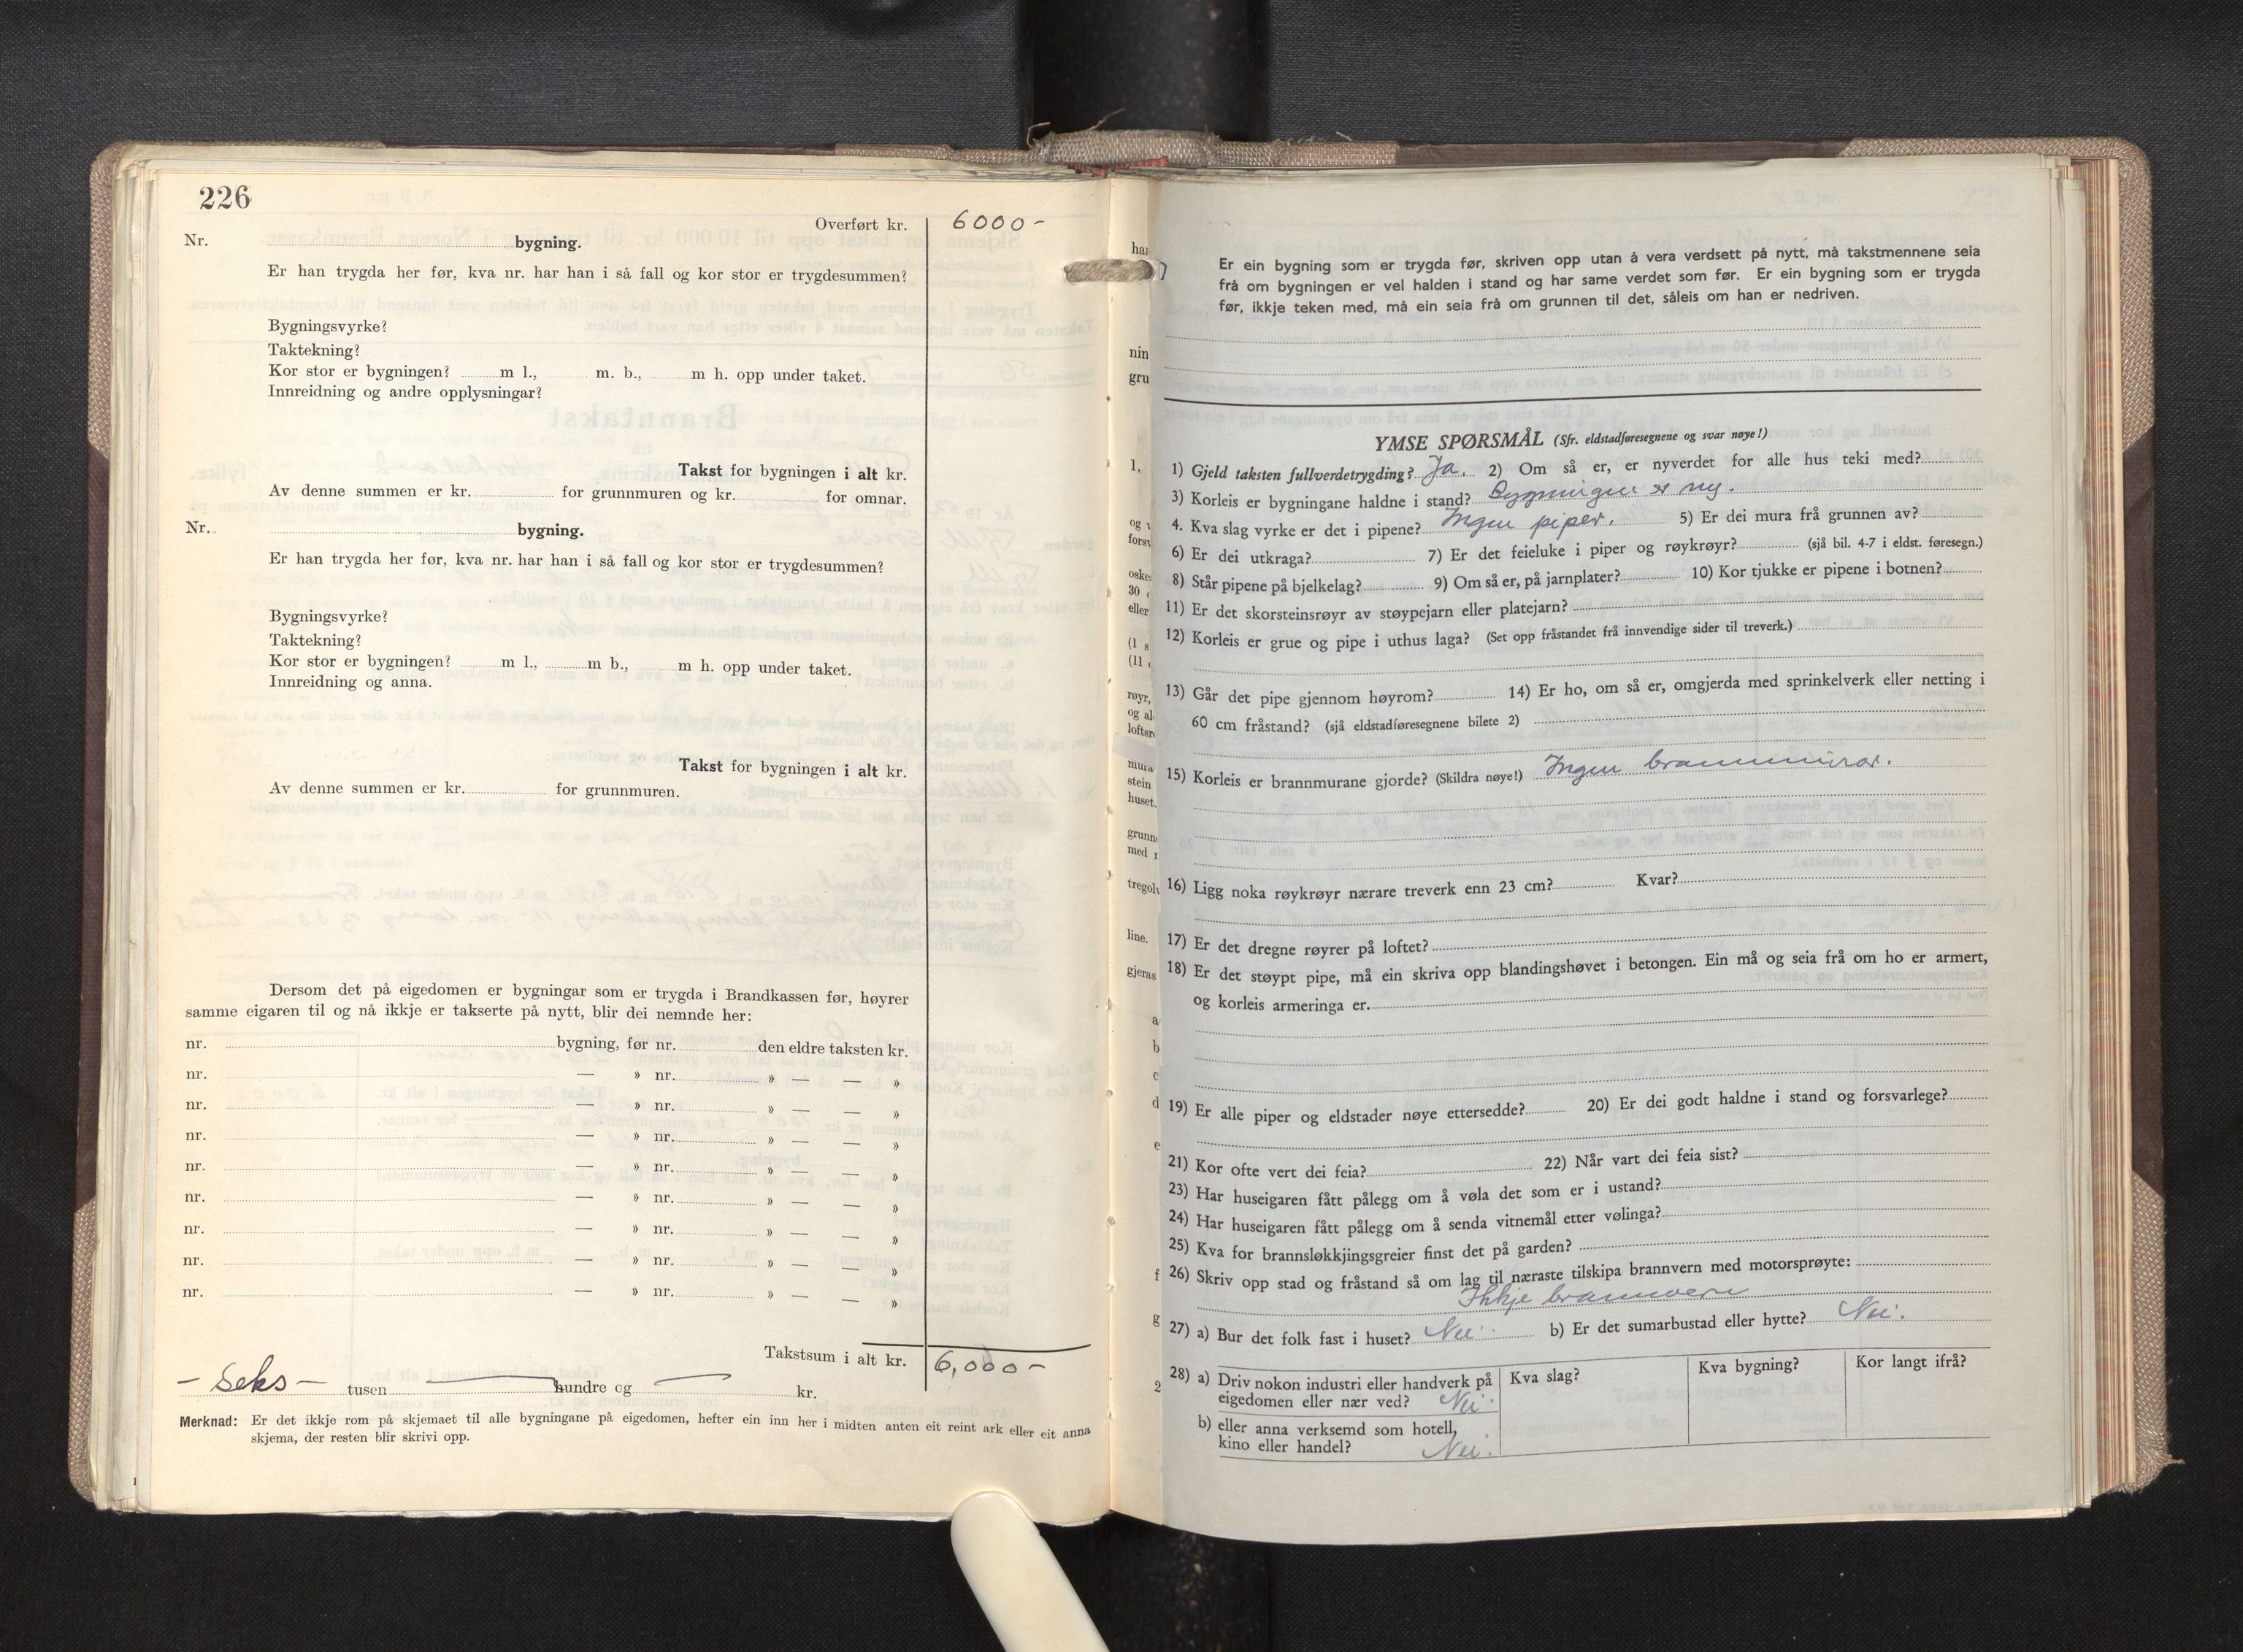 226
Overført kr. 6000-
Nr. bygning.
Er han trygda her før, kva nr. har han i så fall og kor stor er trygdesummen?
Bygningsvyrke?
Taktekning?
Kor stor er bygningen? m l., m. b., m h. opp under taket.
Innreidning og andre opplysningar?
Takst for bygningen i alt kr.
Av denne summen er kr. for grunnmuren og kr. for omnar.
Nr. bygning.
Er han trygda her før, kva nr. har han i så fall og kor stor er trygdesummen?
Bygningsvyrke?
Taktekning?
Kor stor er bygningen? m l., m b., m h. opp under taket.
Innreidning og anna.
Takst for bygningen i alt kr.
Av denne summen er kr. for grunnmuren.
Dersom det på eigedomen er bygningar som er trygda i Brandkassen før, høyrer
samme eigaren til og nå ikkje er takserte på nytt, blir dei nemnde her:
nr. bygning, før nr. den eldre taksten kr.
nr. — » nr. » — — »
nr. — » nr. » — — »
nr. — » nr. » — — »
nr. — » nr. » — — »
nr. — » nr. » — — »
nr. — » nr. » — — »
nr. — » nr. » — — »
nr. — » nr. » — — »
Takstsum i alt kr. 6,000-
- seks - tusen — hundre og — kr.
Merknad: Er det ikkje rom på skjemaet til alle bygningane på eigedomen, hefter ein inn her i midten anten eit reint ark eller eit anna
skjema, der resten blir skrivi opp.
Er ein bygning som er trygda før, skriven opp utan å vera verdsett på nytt, må takstmennene seia
frå om bygningen er vel halden i stand og har same verdet som før. Er ein bygning som er trygda
før, ikkje teken med, må ein seia frå om grunnen til det, såleis om han er nedriven.
YMSE SPØRSMÅL (Sfr. eldstadføresegnene og svar nøye!)
1) Gjeld taksten fullverdetrygding? Ja. 2) Om så er, er nyverdet for alle hus teki med?
3) Korleis er bygningane haldne i stand? Bygningen er ny.
4. Kva slag vyrke er det i pipene? Ingen piper. 5) Er dei mura frå grunnen av?
6) Er dei utkraga? 7) Er det feieluke i piper og røykrøyr? (sjå bil. 4-7 i eldst. føresegn.)
8) Står pipene på bjelkelag? 9) Om så er, på jarnplater? 10) Kor tjukke er pipene i botnen?
11) Er det skorsteinsrøyr av støypejarn eller platejarn?
12) Korleis er grue og pipe i uthus laga? (Set opp fråstandet frå innvendige sider til treverk.)
13) Går det pipe gjennom høyrom? 14) Er ho, om så er, omgjerda med sprinkelverk eller netting i
60 cm fråstand? (sjå eldstadføresegnene bilete 2)
15) Korleis er brannmurane gjorde? (Skildra nøye!) Ingen brannmurar.
16) Ligg noka røykrøyr nærare treverk enn 23 cm? Kvar?
17) Er det dregne røyrer på loftet?
18) Er det støypt pipe, må ein skriva opp blandingshøvet i betongen. Ein må og seia frå om ho er armert,
og korleis armeringa er.
19) Er alle piper og eldstader nøye ettersedde? 20) Er dei godt haldne i stand og forsvarlege?
21) Kor ofte vert dei feia? 22) Når vart dei feia sist?
23) Har huseigaren fått pålegg om å vøla det som er i ustand?
24) Har huseigaren fått pålegg om å senda vitnemål etter vølinga?
25) Kva for brannsløkkjingsgreier finst det på garden?
26) Skriv opp stad og fråstand så om lag til næraste tilskipa brannvern med motorsprøyte:
Ikkje brannvern
27) a) Bur det folk fast i huset? Nei. b) Er det sumarbustad eller hytte? Nei.
28) a) Driv nokon industri eller handverk på Kva slag? Kva bygning? Kor langt ifrå?
eigedomen eller nær ved? Nei.
b) eller anna verksemd som hotell,
kino eller handel? Nei.